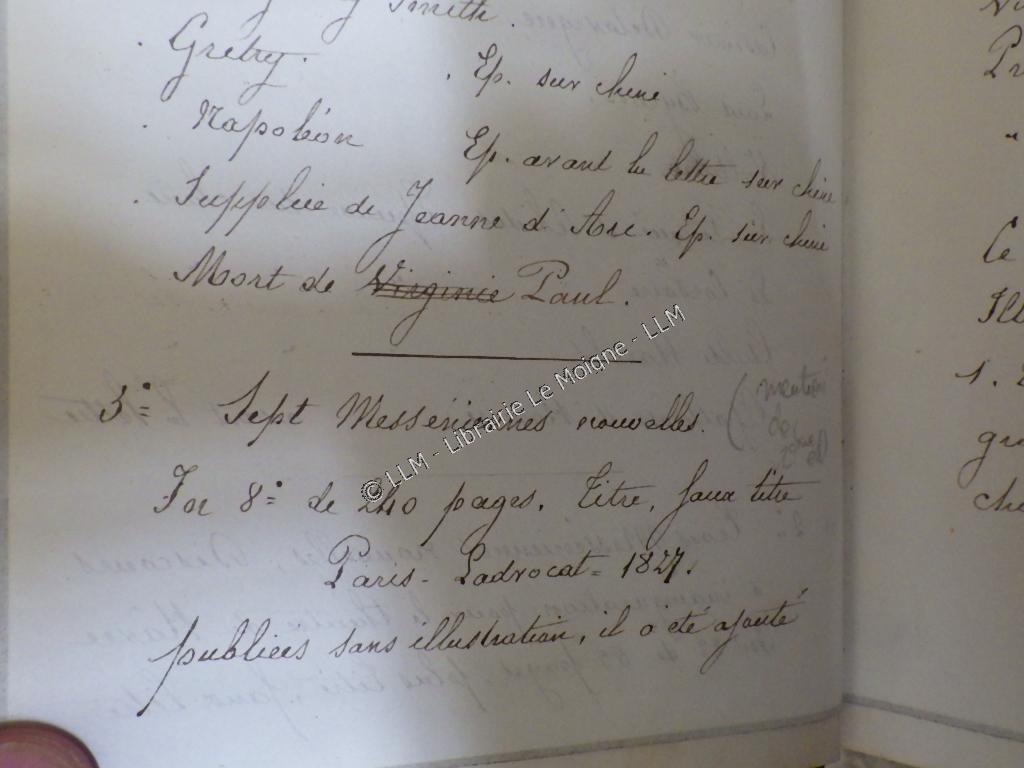 Smith.
Grétry. Ep. sur chine
Napoléon Ep. avant la lettre sur chine
Supplice de Jeanne d'Arc. Ep. sur chine
Mort de Virginie Paul.
3°= Sept Messéniennes nouvelles. (mention de
In 8°= de 240 pages. Titre, faux titre
Paris - Ladvocat = 1827.
publiées sans illustration, il a été ajouté
©LLM - Librairie Le Moigne - LLM
Ce
Ill
1.
gr
che